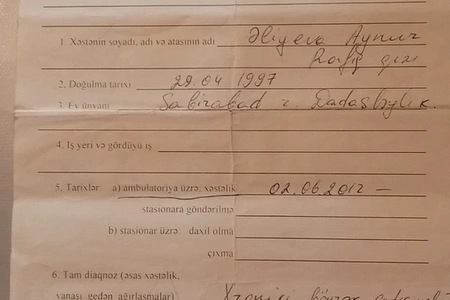 1. Xəstənin soyadı, adı və atasının adı Əliyeva Aynur
Rafiq qızı
2. Doğulma tarixi 29.04 1997
3. Ev ünvanı Sabirabad r. Dadaşbəyli k.
4. İş yeri və gördüyü iş
5. Tarixlər: a) ambulatoriya üzrə, xəstəlik 02.06.2012 —
stasionara göndərilmə
b) stasionar üzrə: daxil olma
çıxma
6. Tam diaqnoz (əsas xəstəlik,
yanaşı gedən ağırlaşmalar) Xroniki böyrək